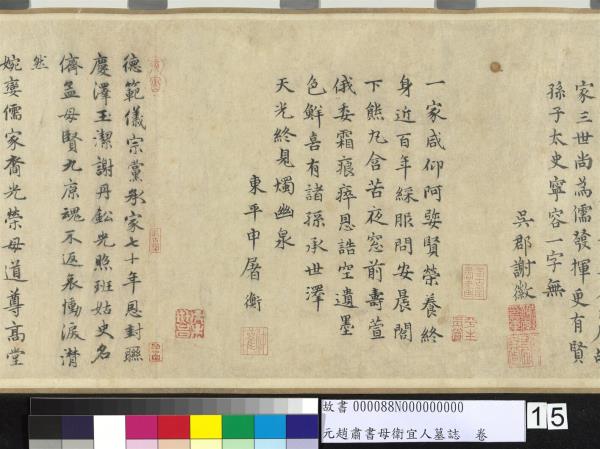 家三世尚為儒發揮更有賢
孫子太史寧容一字無
吳郡謝徽
一家咸仰阿㜫賢榮養終
身近百年綵服問安晨閤
下熊丸含苦夜窓前壽萱
俄委霜痕瘁恩誥空遺墨
色鮮喜有諸孫承世澤
天光終見燭幽泉
東平申屠衡
德範儀宗黨承家七十年恩封聯
慶澤玉潔謝丹鉛光照班姑史名
儕孟母賢九原魂不返哀慟淚潸
然
婉孌儒家裔光榮母道尊高堂
故書 000088N000000000
元趙肅書母衛宜人墓誌 卷
15